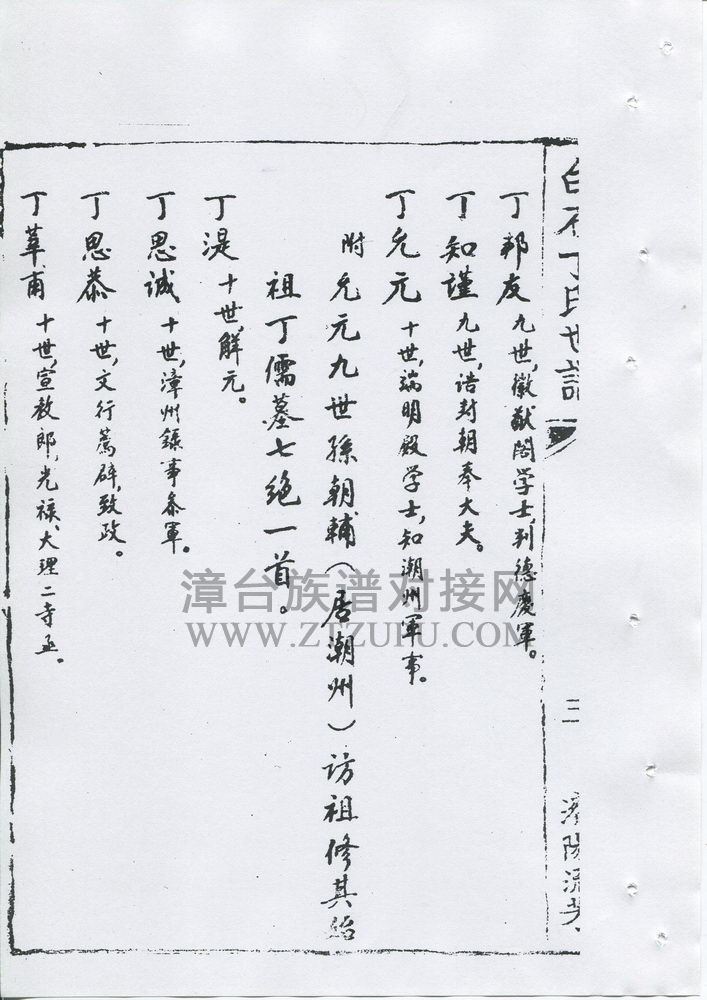 白石丁氏世譜
三
丁邦友 九世,徽猷閣学士,判德慶軍。
丁知謹 九世,诰封朝奉大夫。
丁允元 十世,端明殿学士,知潮州軍事。
附 允元九世孫朝輔(居潮州)访祖修其始
祖丁儒墓七绝一首。
丁湜 十世,解元。
丁思诚 十世,漳州錄事参軍。
丁思恭 十世,文行薦辟,致政。
丁華甫 十世,宣教郎,光禄、大理二寺丞。
漳台族谱对接网
WWW.ZTZUPU.COM